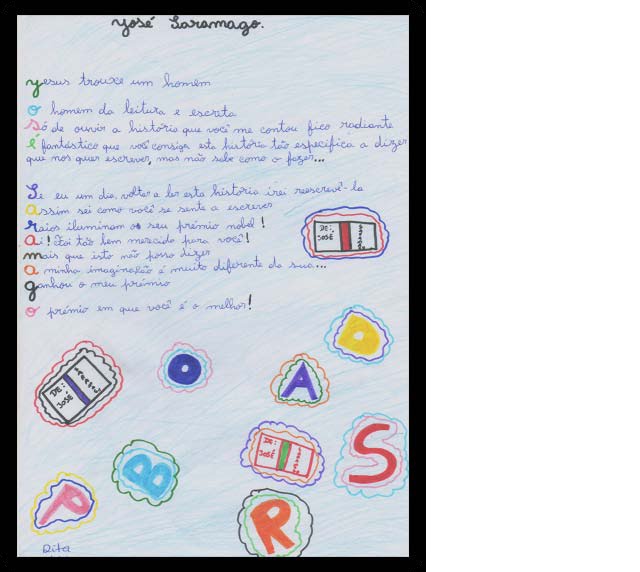 José Saramago.
Jesus trouxe um homem
o homem da leitura e escrita
Só de ouvir a história que você me contou fico radiante
é fantástico que você consiga esta história tão específica a dizer
que nos quer escrever, mas não sabe como o fazer...
Se eu um dia voltar a ler esta história irei reescrevê-la
assim sei como você se sente a escrever
raios iluminam o seu prémio nobel!
ai! Foi tão bem merecido para você!
mais que isto não posso dizer
a minha imaginação é muito diferente da sua...
ganhou o meu prémio
o prémio em que você é o melhor!
DE:
JOSÉ
O
DE:
JOSÉ
O
A
B
DE:
JOSÉ
S
P
R
Rita